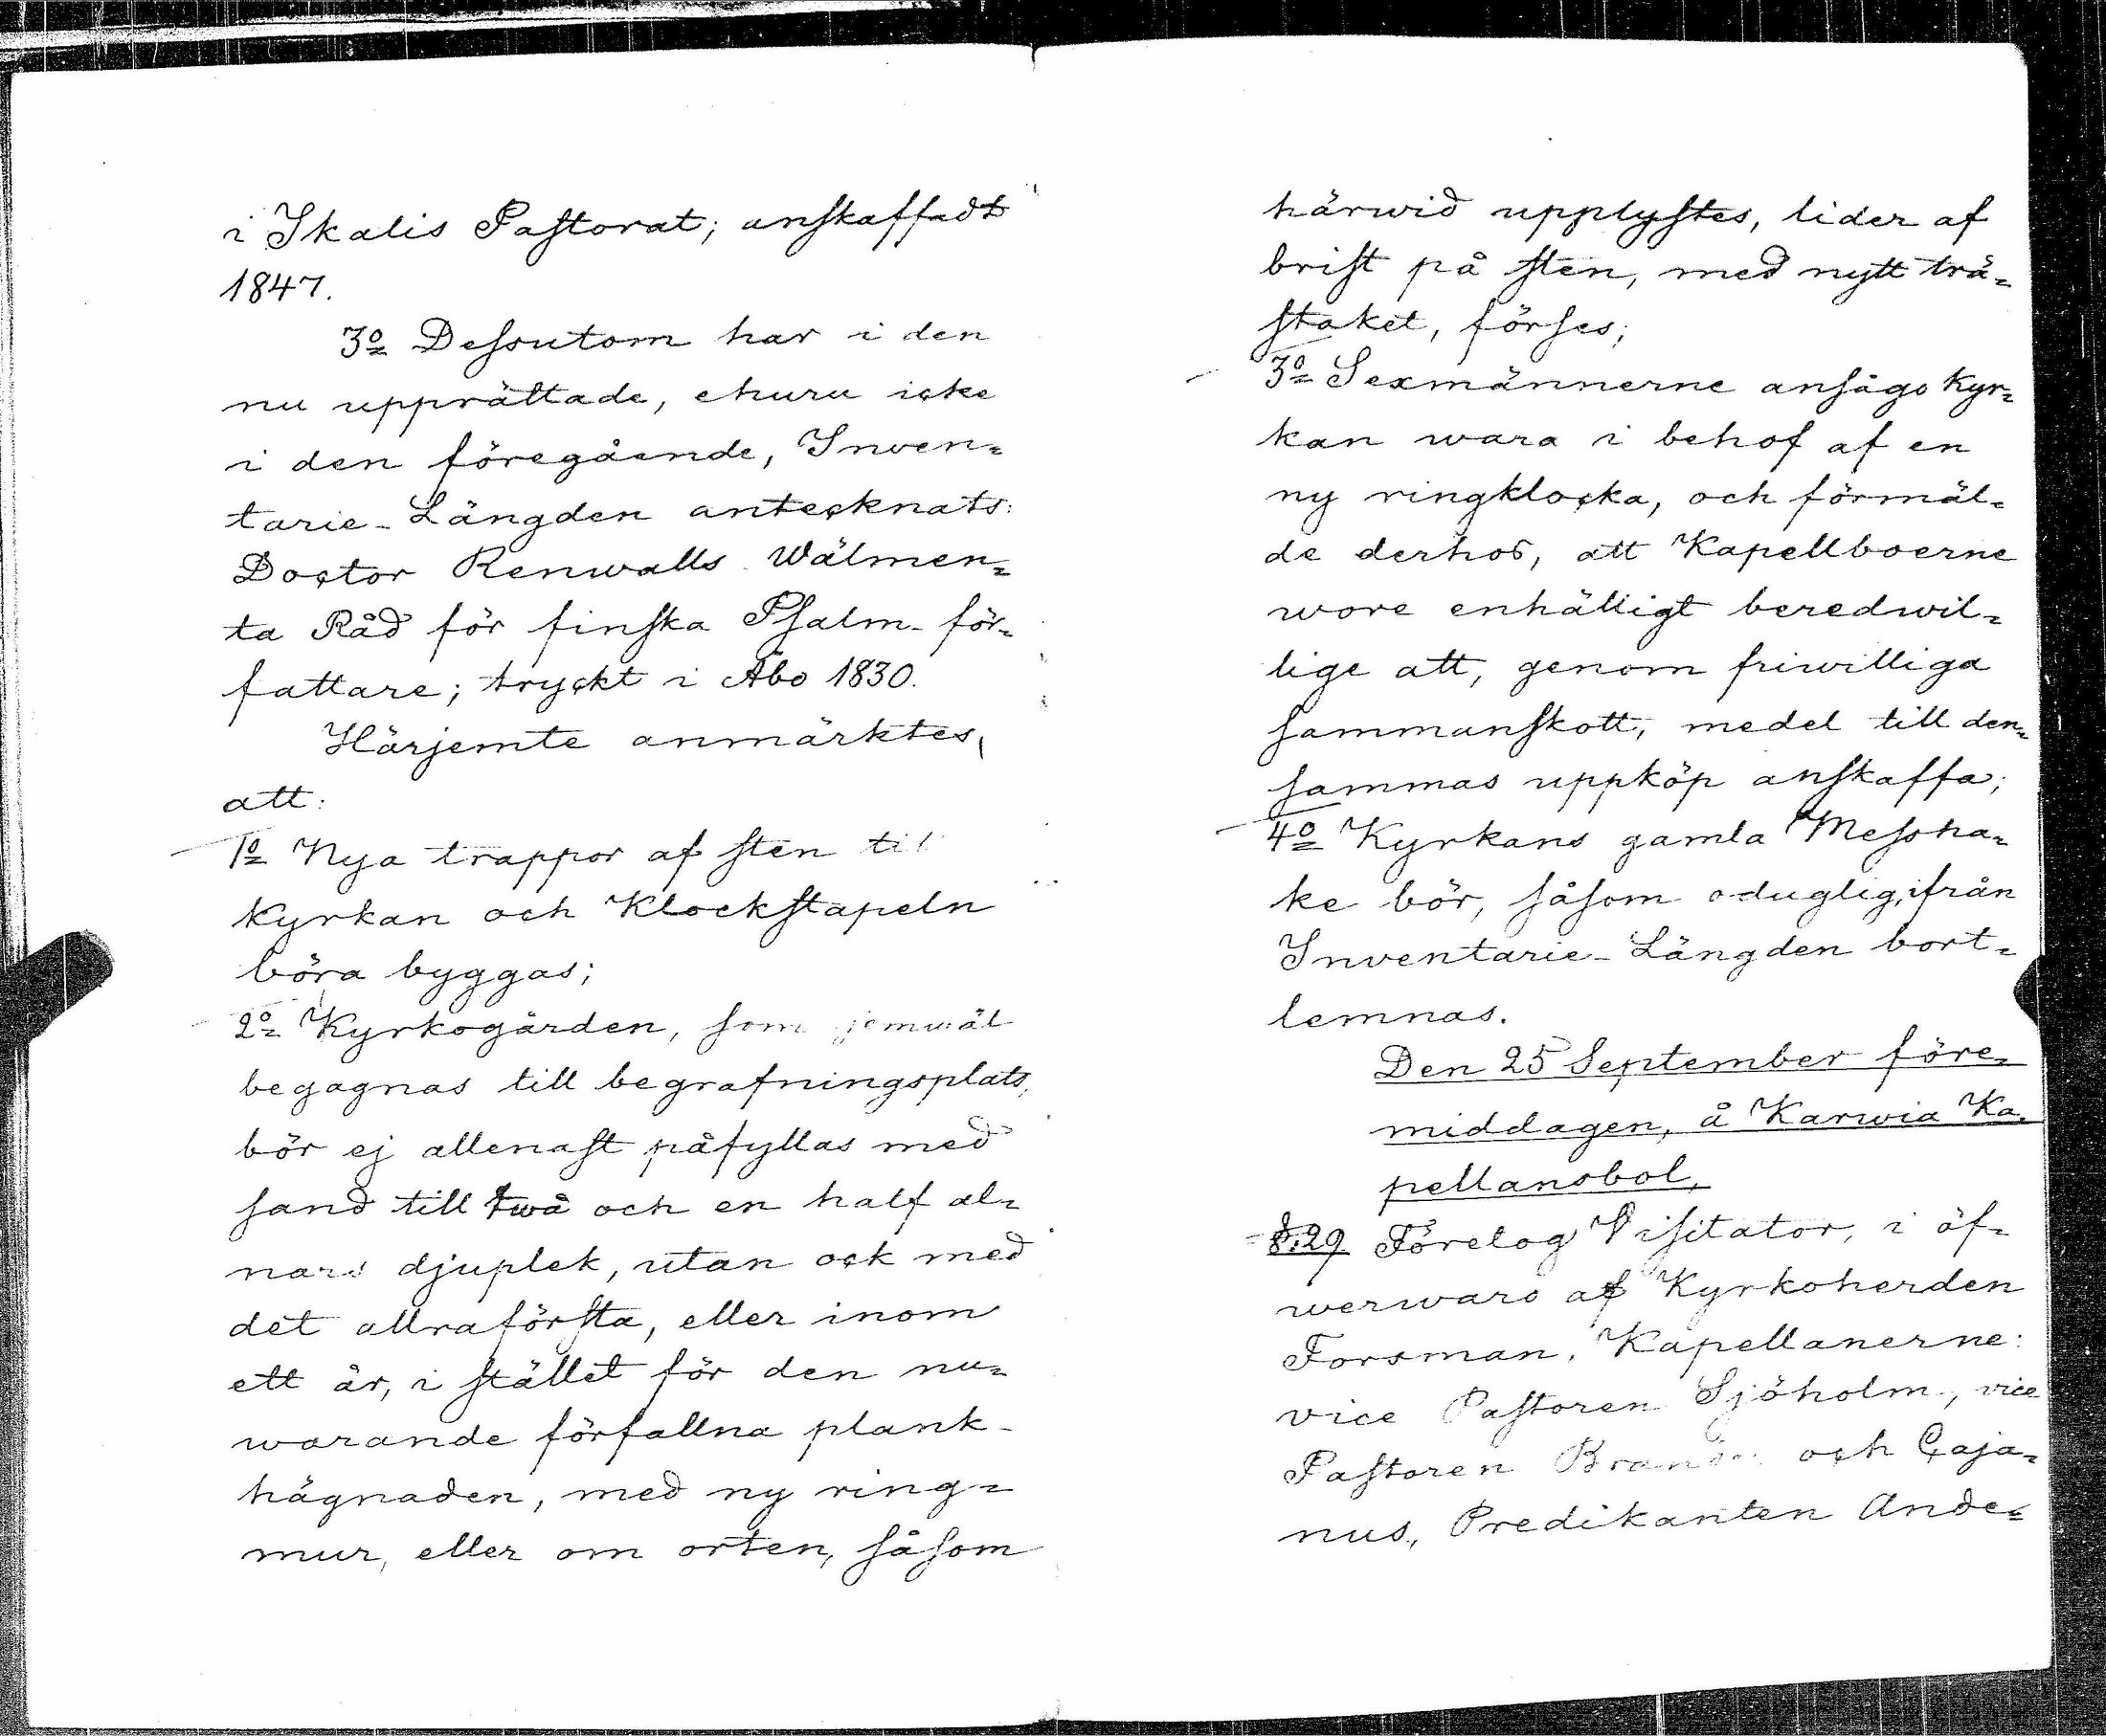 i Ikalis Pastorat; anskaffadt
1847.
3o Dessutom har i den
nu upprättade, ehuru icke
i den föregående, Inven=
tarie-Längden antecknats:
Doctor Renwalls Wälmen=
ta Råd för finska Psalm-för=
fattare; tryckt i Åbo 1830.
Härjemte anmärktes,
att:
1o Nya trappor af sten till
Kyrkan och Klockstapeln
böra byggas;
2o Kyrkogården, som jemwäl
begagnas till begrafningsplats,
bör ej allenast påfyllas med
sand till twå och en half al=
nars djuplek, utan ock med
det allraförsta, eller inom
ett år, i stället för den nu=
warande förfallna plank-
hägnaden, med ny ring=
mur, eller om orten, såsom
härwid upplystes, lider af
brist på sten, med nytt trä=
staket, förses;
3o Sexmännerne ansågo Kyr=
kan wara i behof af en
ny ringklocka, och förmäl=
de derhos, att Kapellboerne
wore enhälligt beredwil=
lige att, genom friwilliga
sammanskott, medel till den=
sammas uppköp anskaffa;
4o Kyrkans gamla Messha=
ke bör, såsom oduglig, ifrån
Inventarie-Längden bort=
lemnas.
Den 25 September före=
middagen, å Karwia Ka=
pellansbol,
§.29. Företog Visitator, i öf=
werwaro af Kyrkoherden
Forsman, Kapellanerne:
vice Pastoren Sjöholm, vice
Pastoren och Caja=
nus, Predikanten Ande=